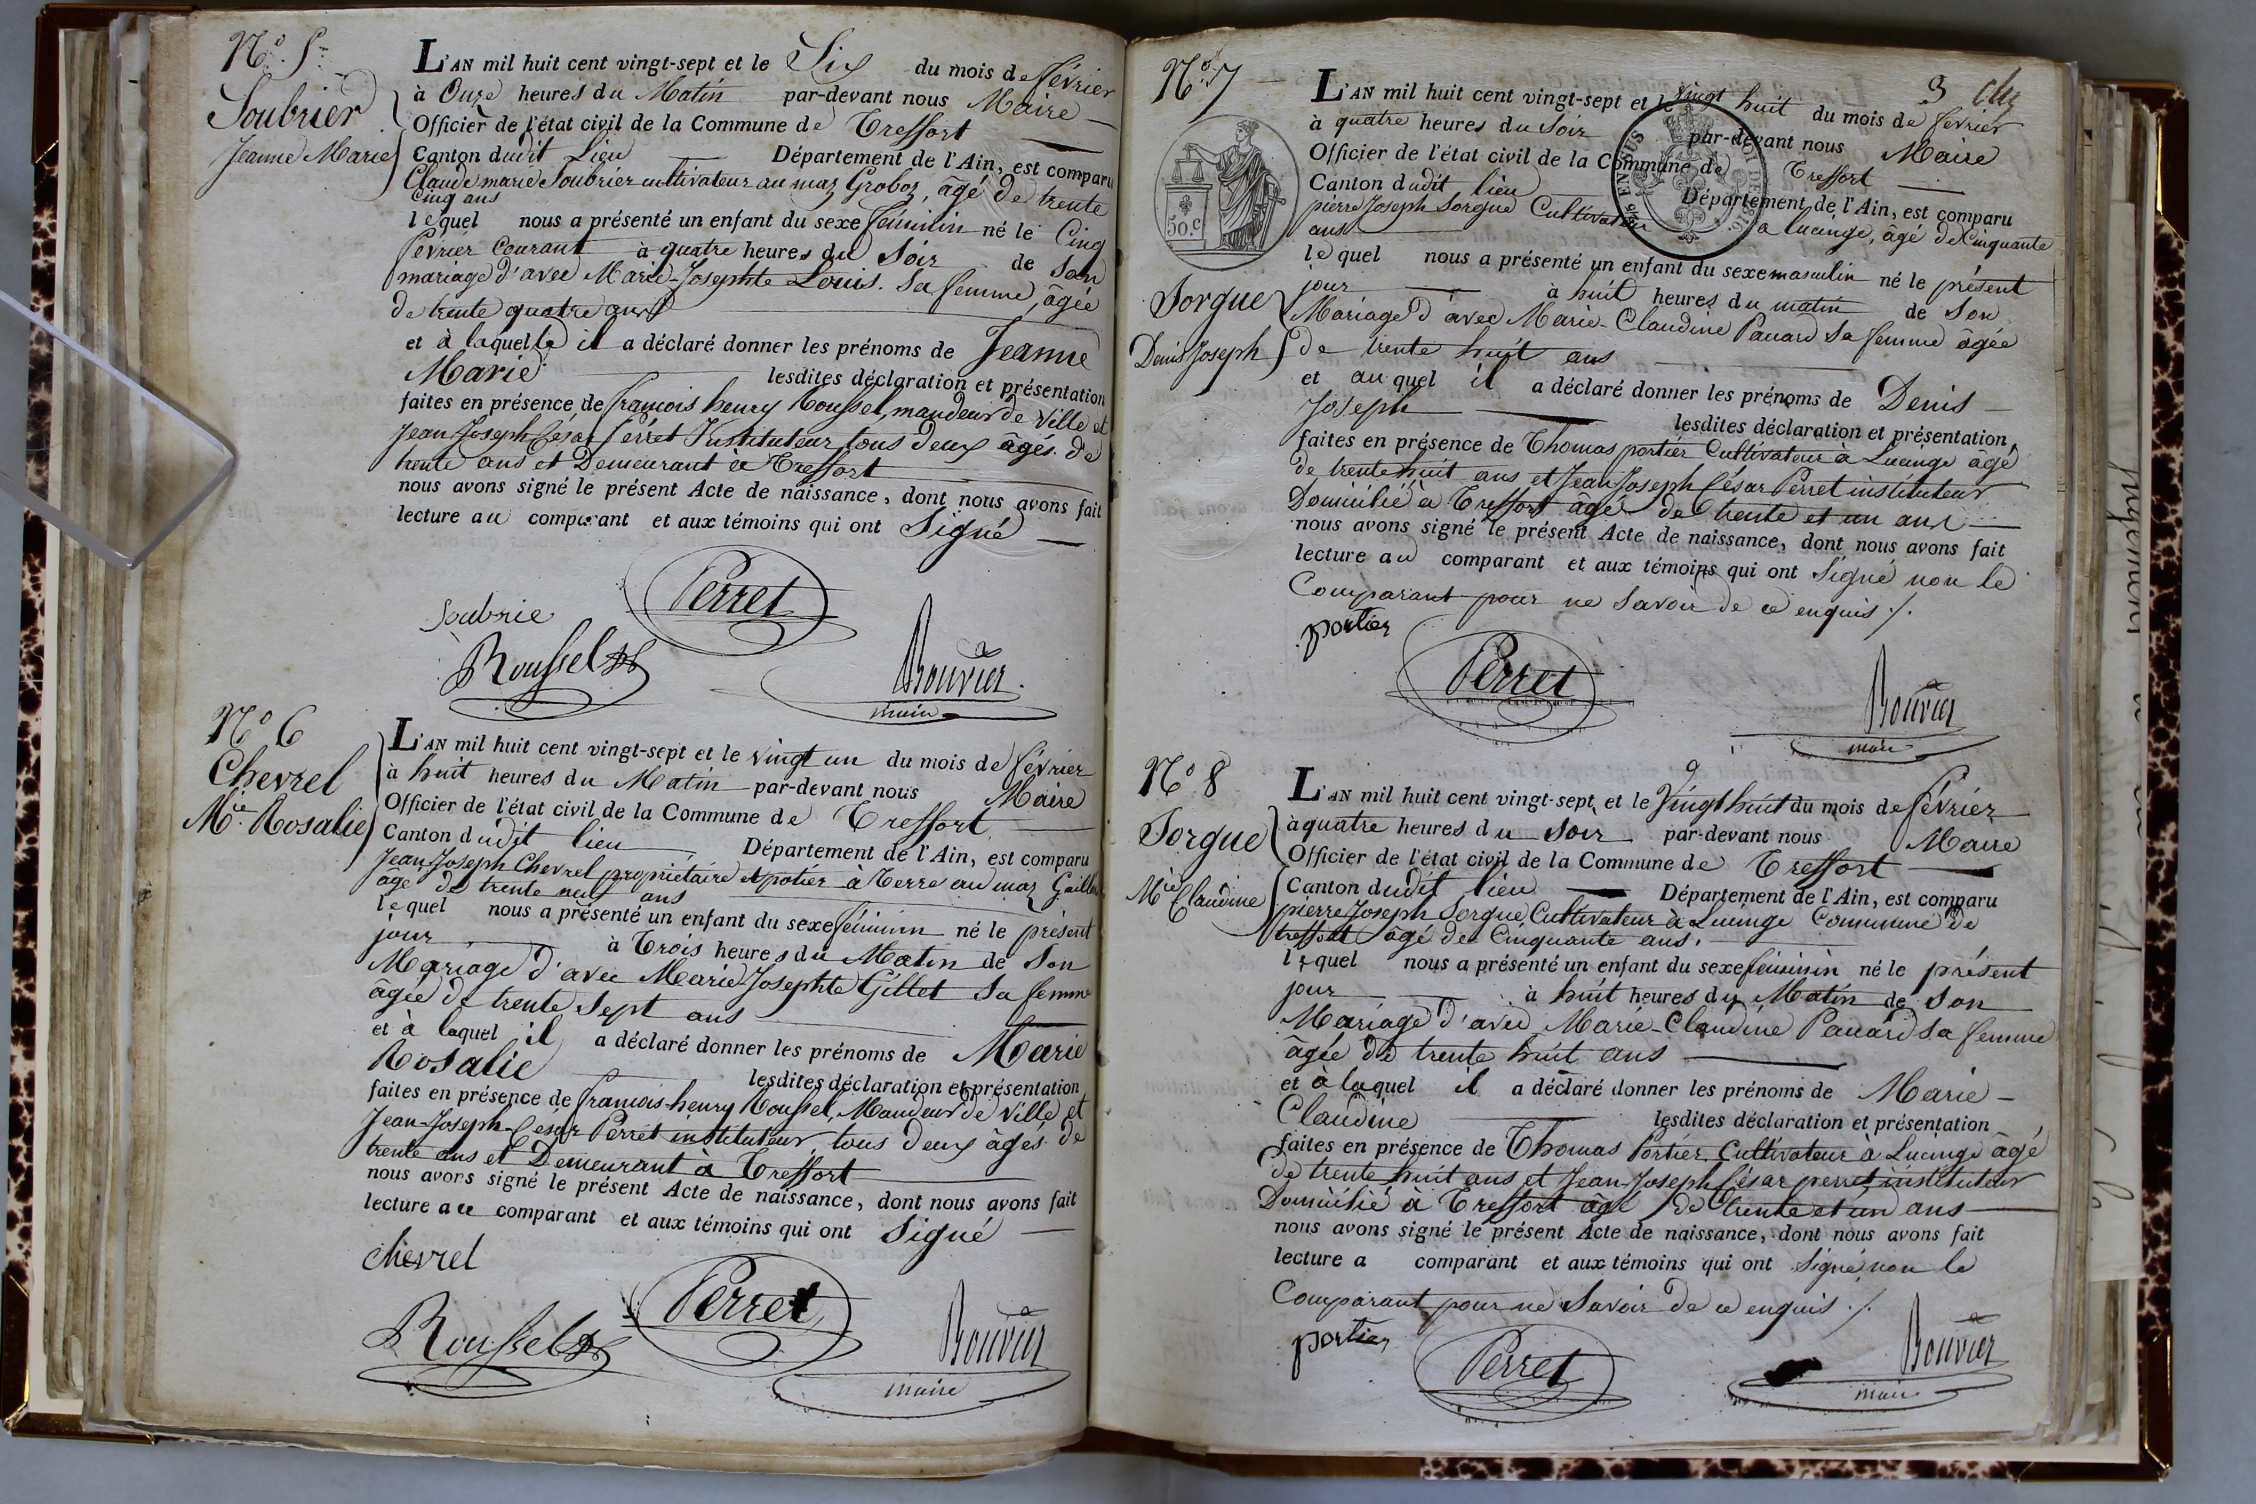 N.º 5.
Soubrier
Jeanne Marie
L'AN mil huit cent vingt-sept et le Six du mois de février
à Onze heures du Matin par-devant nous Maire
Officier de l'état civil de la Commune de Treffort
Canton dudit Lieu Département de l'Ain, est comparu
Claude marie Soubrier cultivateur au maz Groboz, âgé de trente
cinq ans
lequel nous a présenté un enfant du sexe féminin né le Cinq
février courant à quatre heures du Soir de son
mariage d'avec Marie-Josephte Louis. Sa femme, âgée
de trente quatre ans
et à laquelle il a déclaré donner les prénoms de Jeanne
Marie lesdites déclaration et présentation
faites en présence de françois henry Roussel, mandeur de Ville et
Jean Joseph César Perret Instituteur, tous deux âgés de
trente ans et Demeurant à Treffort
nous avons signé le présent Acte de naissance, dont nous avons fait
lecture au comparant et aux témoins qui ont Signé
Soubrie
Perret
Roussel
Bouvier
maire
N.º 6
Chevrel
M.ie Rosalie
L'AN mil huit cent vingt-sept et le vingt un du mois de février
à huit heures du Matin par-devant nous Maire
Officier de l'état civil de la Commune de Treffort
Canton dudit lieu Département de l'Ain, est comparu
Jean Joseph Chevrel propriétaire et potier à Terre au maz
âgé de trente neuf ans
lequel nous a présenté un enfant du sexe féminin né le présent
jour à Trois heures du Matin de Son
Mariage d'avec Marie Josephte Gillet Sa femme
âgée de trente Sept ans
et à laquel il a déclaré donner les prénoms de Marie
Rosalie lesdites déclaration et présentation
faites en présence de françois-henry Roussel, Mandeur de Ville et
Jean-Joseph-César Perret instituteur, tous deux âgés de
trente ans et Demeurant à Treffort
nous avons signé le présent Acte de naissance, dont nous avons fait
lecture au comparant et aux témoins qui ont Signé
chevrel
Perret
Roussel
Bouvier
maire
3
N.º 7
50.c
Sorgue
Denis Joseph
L'AN mil huit cent vingt-sept et le vingt huit du mois de février
à quatre heures du Soir par-devant nous Maire
Officier de l'état civil de la Commune de Treffort
Canton dudit lieu Département de l'Ain, est comparu
pierre Joseph Sorgue Cultivateur a lucinge, âgé de Cinquante
ans
lequel nous a présenté un enfant du sexe masculin né le présent
jour à huit heures du matin de Son
Mariage d'avec Marie-Claudine Panard Sa femme âgée
de trente huit ans
et auquel il a déclaré donner les prénoms de Denis
Joseph lesdites déclaration et présentation
faites en présence de Thomas portier Cultivateur à Lucinge âgé
de trente huit ans et Jean Joseph César Perret instituteur
Domicilié à Treffort âgé de trente et un ans
nous avons signé le présent Acte de naissance, dont nous avons fait
lecture au comparant et aux témoins qui ont Signé non le
Comparant pour ne Savoir de ce enquis ./.
portier
Perret
Bouvier
maire
N.º 8
Sorgue
M.ie Claudine
L'AN mil huit cent vingt-sept et le Vingt huit du mois de février
à quatre heures du soir par-devant nous Maire
Officier de l'état civil de la Commune de Treffort
Canton dudit lieu Département de l'Ain, est comparu
pierre Joseph Sorgue Cultivateur à Lucinge Commune de
treffort âgé de Cinquante ans.
lequel nous a présenté un enfant du sexe féminin né le présent
jour à huit heures du Matin de Son
Mariage d'avec Marie-Claudine Panard Sa femme
âgée de trente huit ans
et à laquel il a déclaré donner les prénoms de Marie
Claudine lesdites déclaration et présentation
faites en présence de Thomas Portier Cultivateur à Lucinge âgé
de trente huit ans et Jean Joseph César perret instituteur
Domicilié à Treffort âgé de trente et un ans
nous avons signé le présent Acte de naissance, dont nous avons fait
lecture a comparant et aux témoins qui ont Signé non le
Comparant pour ne Savoir de ce enquis ./.
portier
Perret
Bouvier
maire